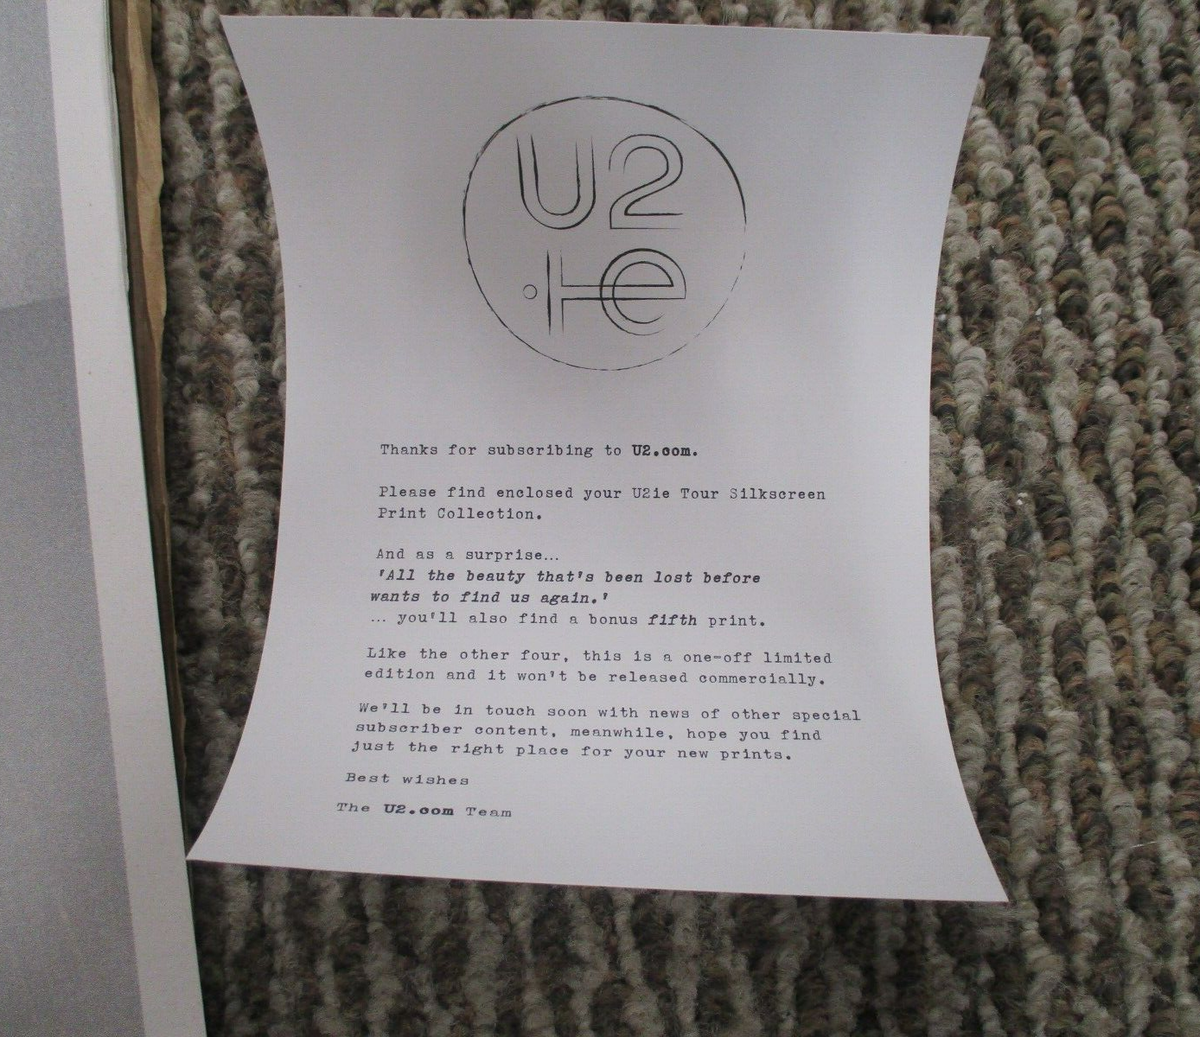 U2
ie
Thanks for subscribing to U2.com.
Please find enclosed your U2ie Tour Silkscreen
Print Collection.
And as a surprise...
'All the beauty that's been lost before
wants to find us again.'
... you'll also find a bonus fifth print.
Like the other four, this is a one-off limited
edition and it won't be released commercially.
We'll be in touch soon with news of other special
subscriber content, meanwhile, hope you find
just the right place for your new prints.
Best wishes
The U2.com Team